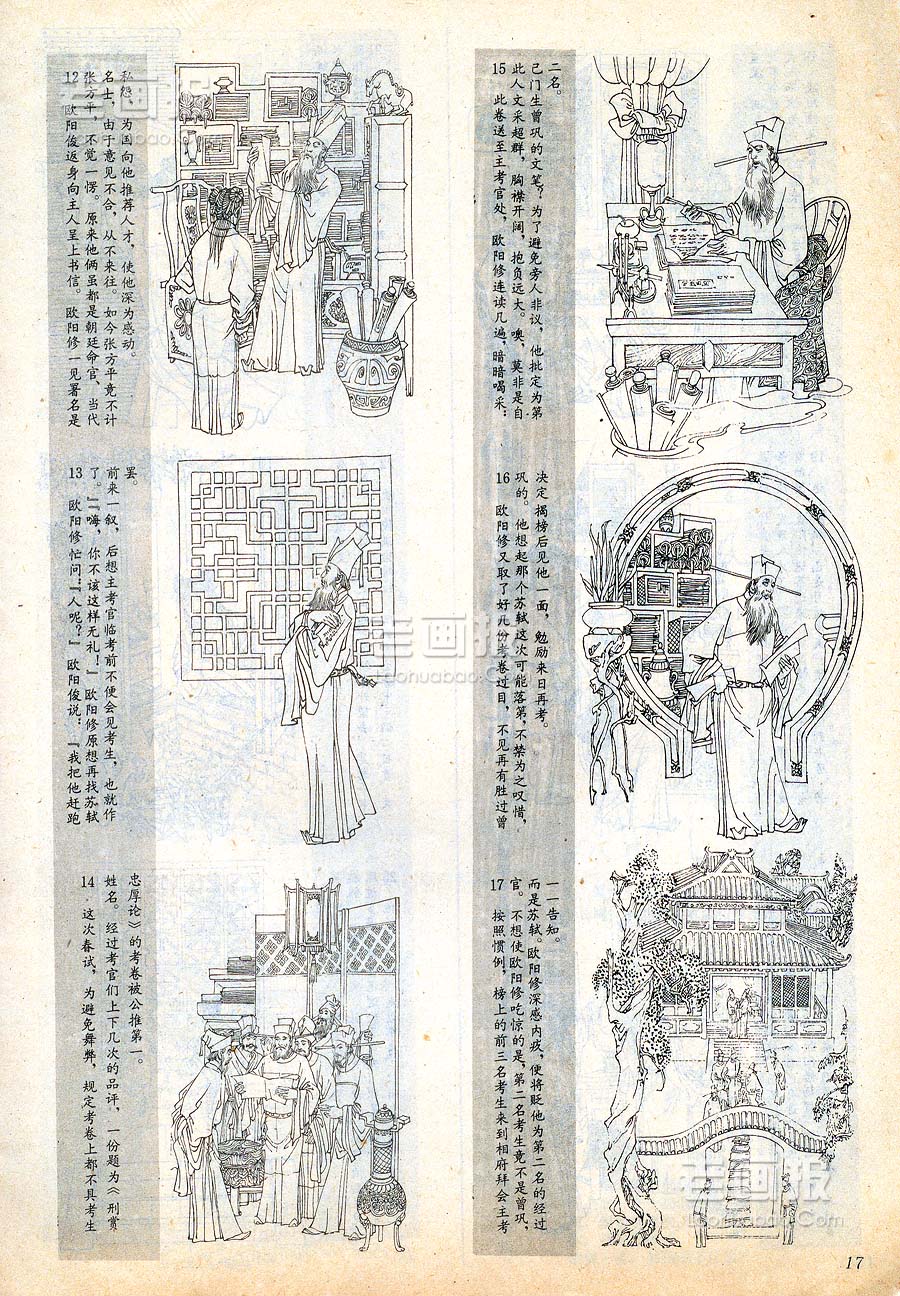 12 欧阳俊返身向主人呈上书信。欧阳修一见署名是
张方平，不觉一愣。原来他俩虽都是朝廷命官、当代
名士，由于意见不合，从不来往。如今张方平竟不计
私怨，为国向他推荐人才，使他深为感动。
13 欧阳修忙问：『人呢？』欧阳俊说：『我把他赶跑
了。』『嗨，你不该这样无礼！』欧阳修原想再找苏轼
前来一叙，后想主考官临考前不便会见考生，也就作
罢。
14 这次春试，为避免舞弊，规定考卷上都不具考生
姓名。经过考官们上下几次的品评，一份题为《刑赏
忠厚论》的考卷被公推第一。
15 此卷送至主考官处，欧阳修连读几遍，暗暗喝采：
此人文采超群，胸襟开阔，抱负远大。噢，莫非是自
己门生曾巩的文笔？为了避免旁人非议，他批定为第
二名。
16 欧阳修又取了好几份考卷过目，不见再有胜过曾
巩的。他想起那个苏轼这次可能落第，不禁为之叹惜，
决定揭榜后见他一面，勉励来日再考。
17 按照惯例，榜上的前三名考生来到相府拜会主考
官。不想使欧阳修吃惊的是，第二名考生竟不是曾巩，
而是苏轼。欧阳修深感内疚，便将贬他为第二名的经过
一一告知。
17
老画报
Laohuabao.Com